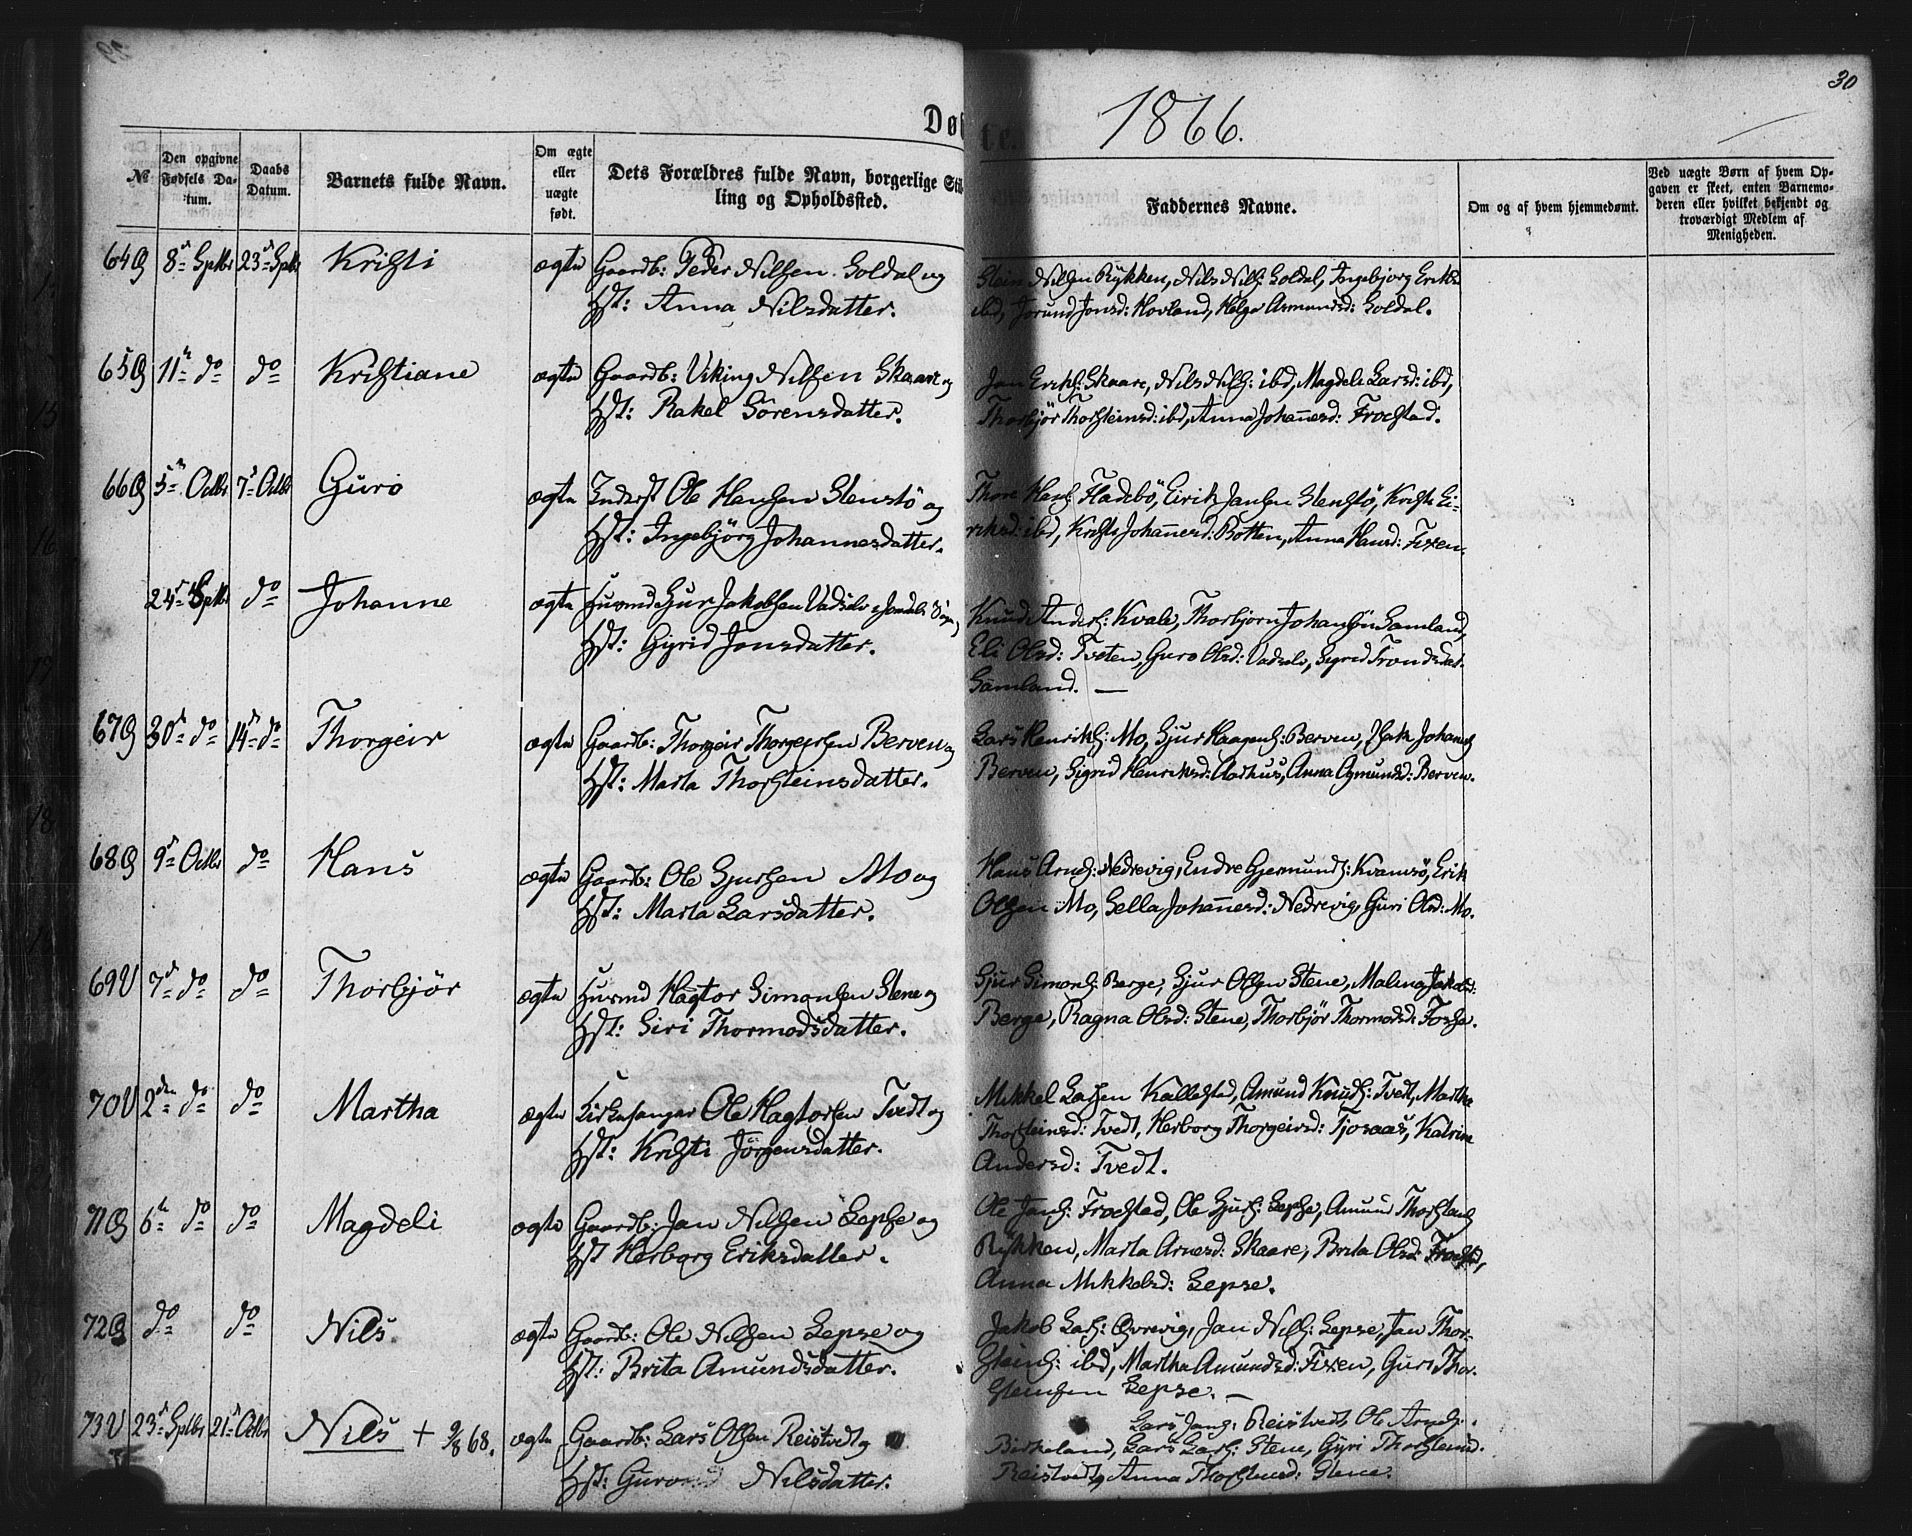 30
Døb
te.
1866.
№
Den opgivne Fødsels Da-tum.
Daabs Datum.
Barnets fulde Navn.
Om ægte eller uægte født.
Dets Forældres fulde Navn, borgerlige Stil-
ling og Opholdssted.
Faddernes Navne.
Om og af hvem hjemmedømt.
Ved uægte Børn af hvem Op-
gaven er skeet, enten Barnemo-
deren eller hvilket bekjendt og
troværdigt Medlem af
Menigheden.
64 8de Sptbr 23de Sptbr Kristi ægte Gaardb: Peder Nilsen Soldal og
Hst: Anna Nilsdatter.
Stein Nilsen Rykken, Nils Nils: Soldal, Ingebjorg Eriksd:
ibd, Jorund Jonsd: Hovland, Helga Asmundsd: Soldal.
65 11te do do Kristiane ægte Gaardb: Viking Nilsen Skaare og
Hst: Rakel Sørensdatter.
Jan Eriks: Skaare, Nils Nils: ibd, Magdeli Larsd: ibd,
Thorbjør Thorsteinsd: ibd, Anna Johannesd: Froestad.
66 5te Octbr 7de Octbr Guro ægte Inderst Ole Hansen Stenstø og
Hst: Ingebjörg Johannesdatter.
Thore Hans: Fladebö, Eirik Jansen Stenstö, Kristi Ei-
riksd: ibd, Kristi Johannesd: Botten, Anna Hansd: Fixen.
24de Sptbr do Johanne ægte Husmd Sjur Jakobsen Vadselv Jondals Sogn
Hst: Gyrid Jonsdatter.
Knud Anders: Kvale, Thorbjørn Johansen Samland,
Eli Olsd: Tveten, Guro Olsd: Vadselv, Sigrid Trondsdat.
Samland. —
67 30de do 14de do Thorgeir ægte Gaardb: Thorgeir Thorgeirsen Berven og
Hst: Marta Thorsteinsdatter.
Lars Henriks: Mo, Sjur Haagens: Berven, Isak Johans:
Berven, Sigrid Henriksd: Aarhus, Anna Amundsd: Berven.
68 9de Octbr do Hans ægte Gaardb: Ole Sjursen Mo og
Hst: Marta Larsdatter.
Hans Arnes: Nedrevig, Endre Gjermunds: Kvamsö, Erik
Olsen Mo, Sella Johannesd: Nedrevig, Guri Olsd: Mo.
69 7de do do Thorbjør ægte Husmd Hagtor Simonsen Stene og
Hst: Siri Thormodsdatter.
Sjur Simons: Berge, Sjur Olsen Stene, Malina Jakobsd:
Berge, Ragna Olsd: Stene, Thorbjör Thormodsd: Fosse.
70 2den do do Martha ægte Kirkesanger Ole Hagtorsen Tvedt og
Hst: Kristi Jörgensdatter.
Mikkel Larsen Kallestad, Amund Knuds: Tvedt, Martha
Thorsteinsd: Tvedt, Herborg Thorgeirsd: Tjosaas, Katrine
Andersd: Tvedt.
71 6te do do Magdeli ægte Gaardb: Jan Nilsen Sepse og
Hst Herborg Eriksdatter.
Ole Jans: Froestad, Ole Sjurs: Sepse, Amund Thorsteins:
Rykken, Marta Arnesd: Skaare, Brita Olsd: Froestad,
Anna Mikkelsd: Sepse.
72 do do Nils. ægte Gaardb: Ole Nilsen Sepse og
Hst: Brita Amundsdatter.
Jakob Lars: Øvrevig, Jan Nils: Sepse, Jan Thor-
steins: ibd, Martha Amundsd: Fixen, Guri Thor-
steinsen Sepse. —
73 23de Sptbr 21de Octbr Nils + 9/8 68. ægte Gaardb: Lars Olsen Reistvedt og
Hst: Guro Nilsdatter.
Lars Jans: Reistvedt, Ole Arnes:
Birkeland, Lars Lars: Stene, Gyri Thorsteinsd.
Reistvedt, Anna Thorsteinsd: Stene.